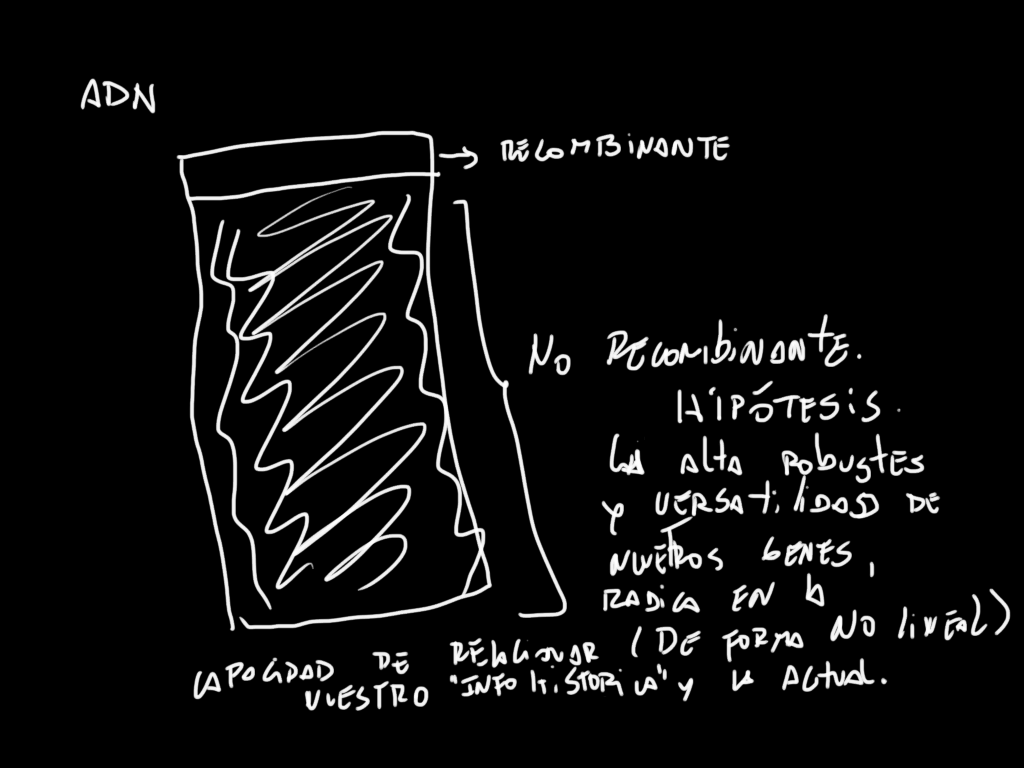 ADN
RECOMBINANTE
NO RECOMBINANTE.
HIPÓTESIS.
LA ALTA ROBUSTES
Y VERSATILIDAD DE
NUESTROS GENES,
RADICA EN LA
CAPACIDAD DE RELACIONAR (DE FORMA NO LINEAL)
NUESTRO "INFO HISTORICA" Y LA ACTUAL.